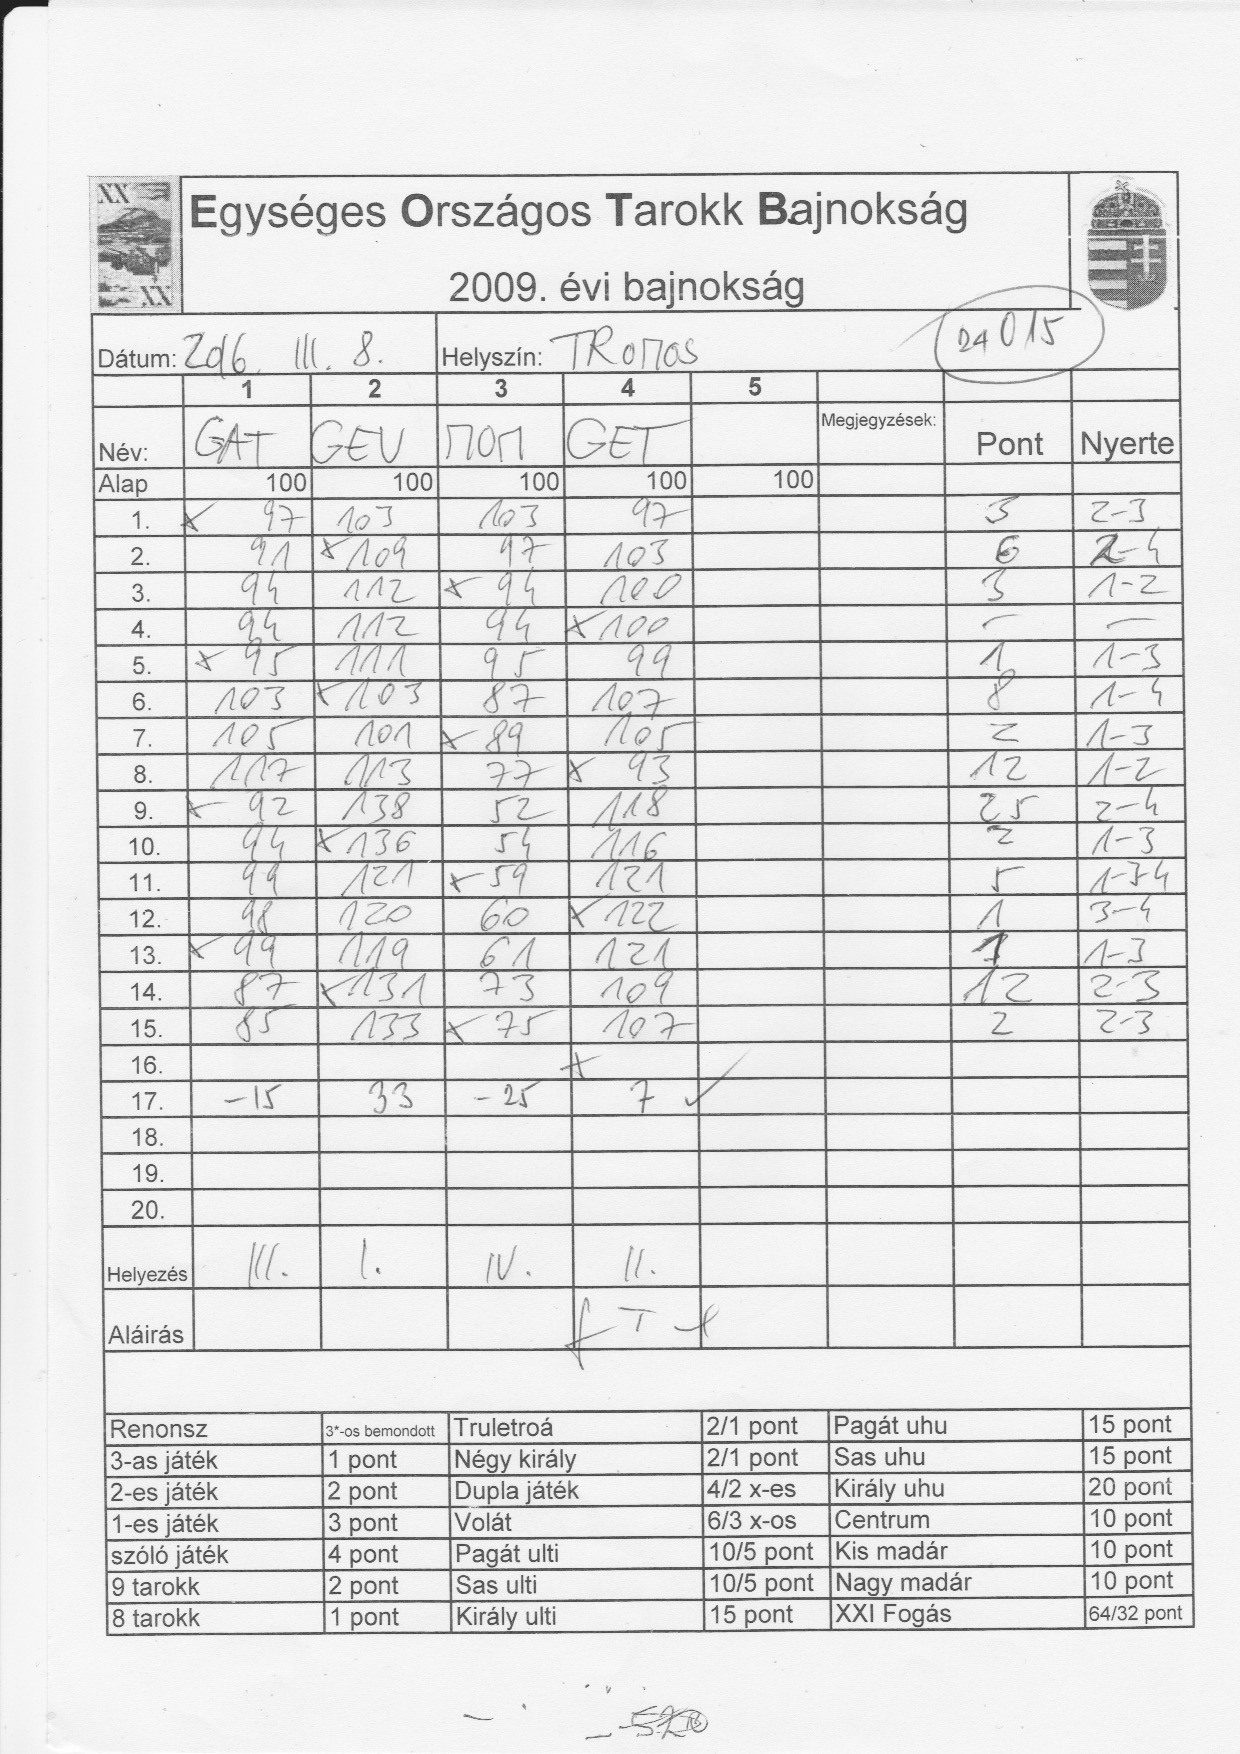 XX
XX
Egységes Országos Tarokk Bajnokság
2009. évi bajnokság
Dátum: 2016. III. 8. Helyszín: TROMOS 24 015
1 2 3 4 5
Név: GAT GEV MOM GET Megjegyzések: Pont Nyerte
Alap 100 100 100 100 100
1. x 97 103 103 97 3 2-3
2. 91 x 109 97 103 6 2-4
3. 94 112 x 94 100 3 1-2
4. 94 112 94 x 100 — —
5. x 95 111 95 99 1 1-3
6. 103 x 103 87 107 8 1-4
7. 105 101 x 89 105 2 1-3
8. 117 113 77 x 93 12 1-2
9. x 92 138 52 118 25 2-4
10. 94 x 136 54 116 2 1-3
11. 99 121 x 59 121 5 1-3-4
12. 98 120 60 x 122 1 3-4
13. x 99 119 61 121 1 1-3
14. 87 x 131 73 109 12 2-3
15. 85 133 x 75 107 2 2-3
16. x
17. -15 33 -25 7 ✓
18.
19.
20.
Helyezés III. I. IV. II.
Aláírás
Renonsz 3*-os bemondott Truletroá 2/1 pont Pagát uhu 15 pont
3-as játék 1 pont Négy király 2/1 pont Sas uhu 15 pont
2-es játék 2 pont Dupla játék 4/2 x-es Király uhu 20 pont
1-es játék 3 pont Volát 6/3 x-os Centrum 10 pont
szóló játék 4 pont Pagát ulti 10/5 pont Kis madár 10 pont
9 tarokk 2 pont Sas ulti 10/5 pont Nagy madár 10 pont
8 tarokk 1 pont Király ulti 15 pont XXI Fogás 64/32 pont